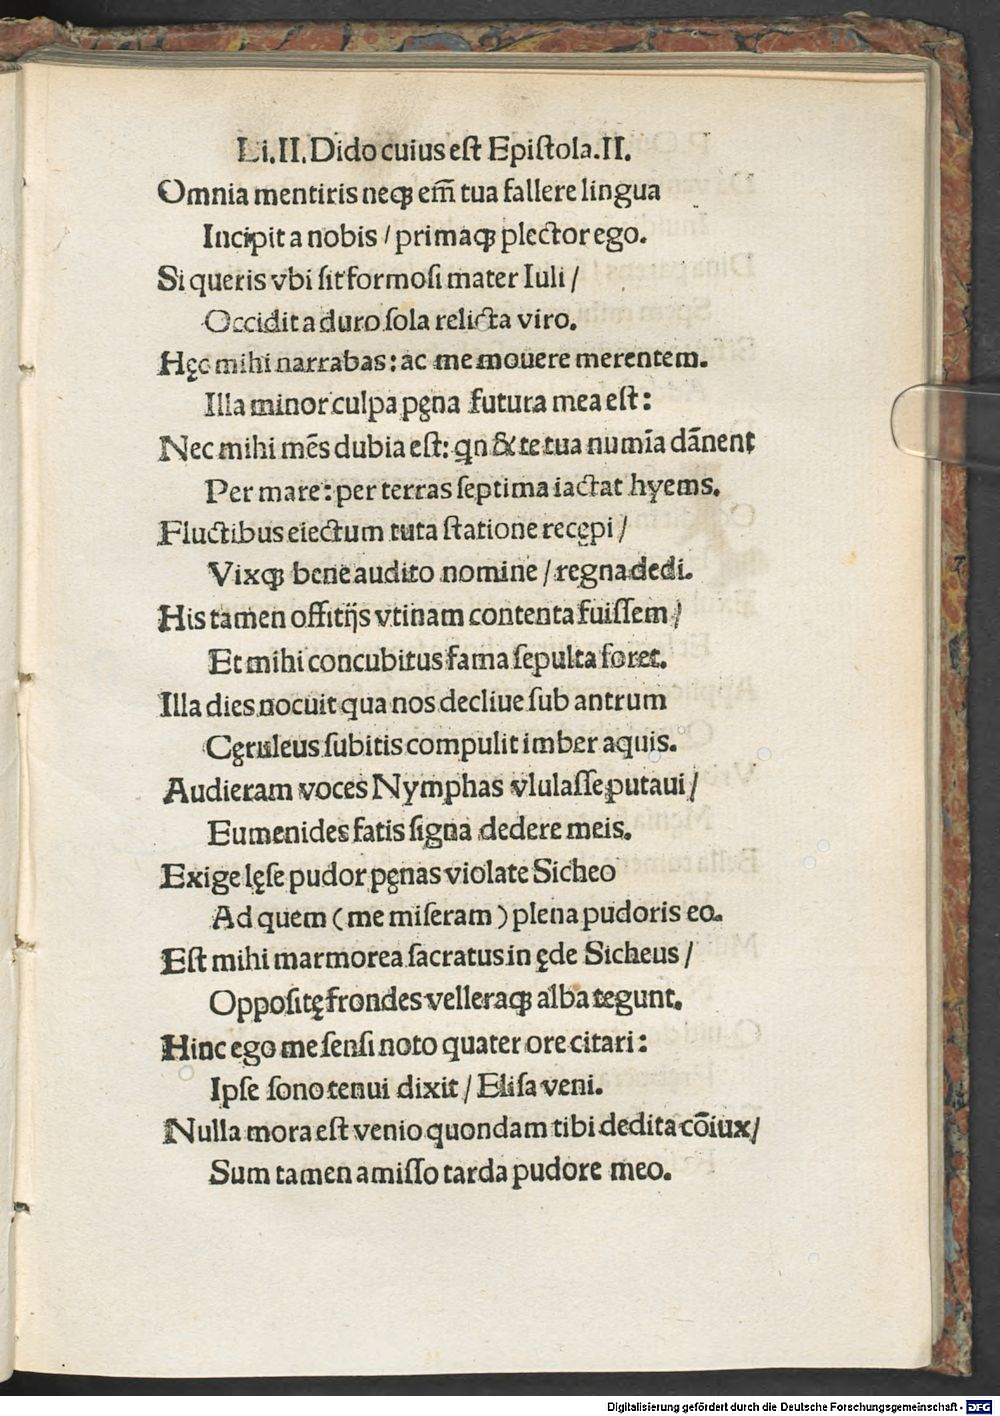 Li.II.Dido cuius est Epistola.II.
Omnia mentiris neqꝫ em̃ tua fallere lingua
Incipit a nobis / primaqꝫ plector ego.
Si queris vbi sit formosi mater Iuli /
Occidit a duro sola relicta viro.
Hęc mihi narrabas: ac me mouere merentem.
Illa minor culpa pęna futura mea est:
Nec mihi mẽs dubia est: qn & te tua numĩa dãnent
Per mare: per terras septima iactat hyems.
Fluctibus eiectum tuta statione recępi /
Vixqꝫ bene audito nomine / regna dedi.
His tamen offitijs vtinam contenta fuissem /
Et mihi concubitus fama sepulta foret.
Illa dies nocuit qua nos decliue sub antrum
Cęruleus subitis compulit imber aquis.
Audieram voces Nymphas vlulasse putaui /
Eumenides fatis signa dedere meis.
Exige lęse pudor pęnas violate Sicheo
Ad quem (me miseram) plena pudoris eo.
Est mihi marmorea sacratus in ęde Sicheus /
Oppositę frondes velleraqꝫ alba tegunt.
Hinc ego me sensi noto quater ore citari:
Ipse sono tenui dixit / Elisa veni.
Nulla mora est venio quondam tibi dedita cõiux /
Sum tamen amisso tarda pudore meo.
Digitalisierung gefördert durch die Deutsche Forschungsgemeinschaft - DFG